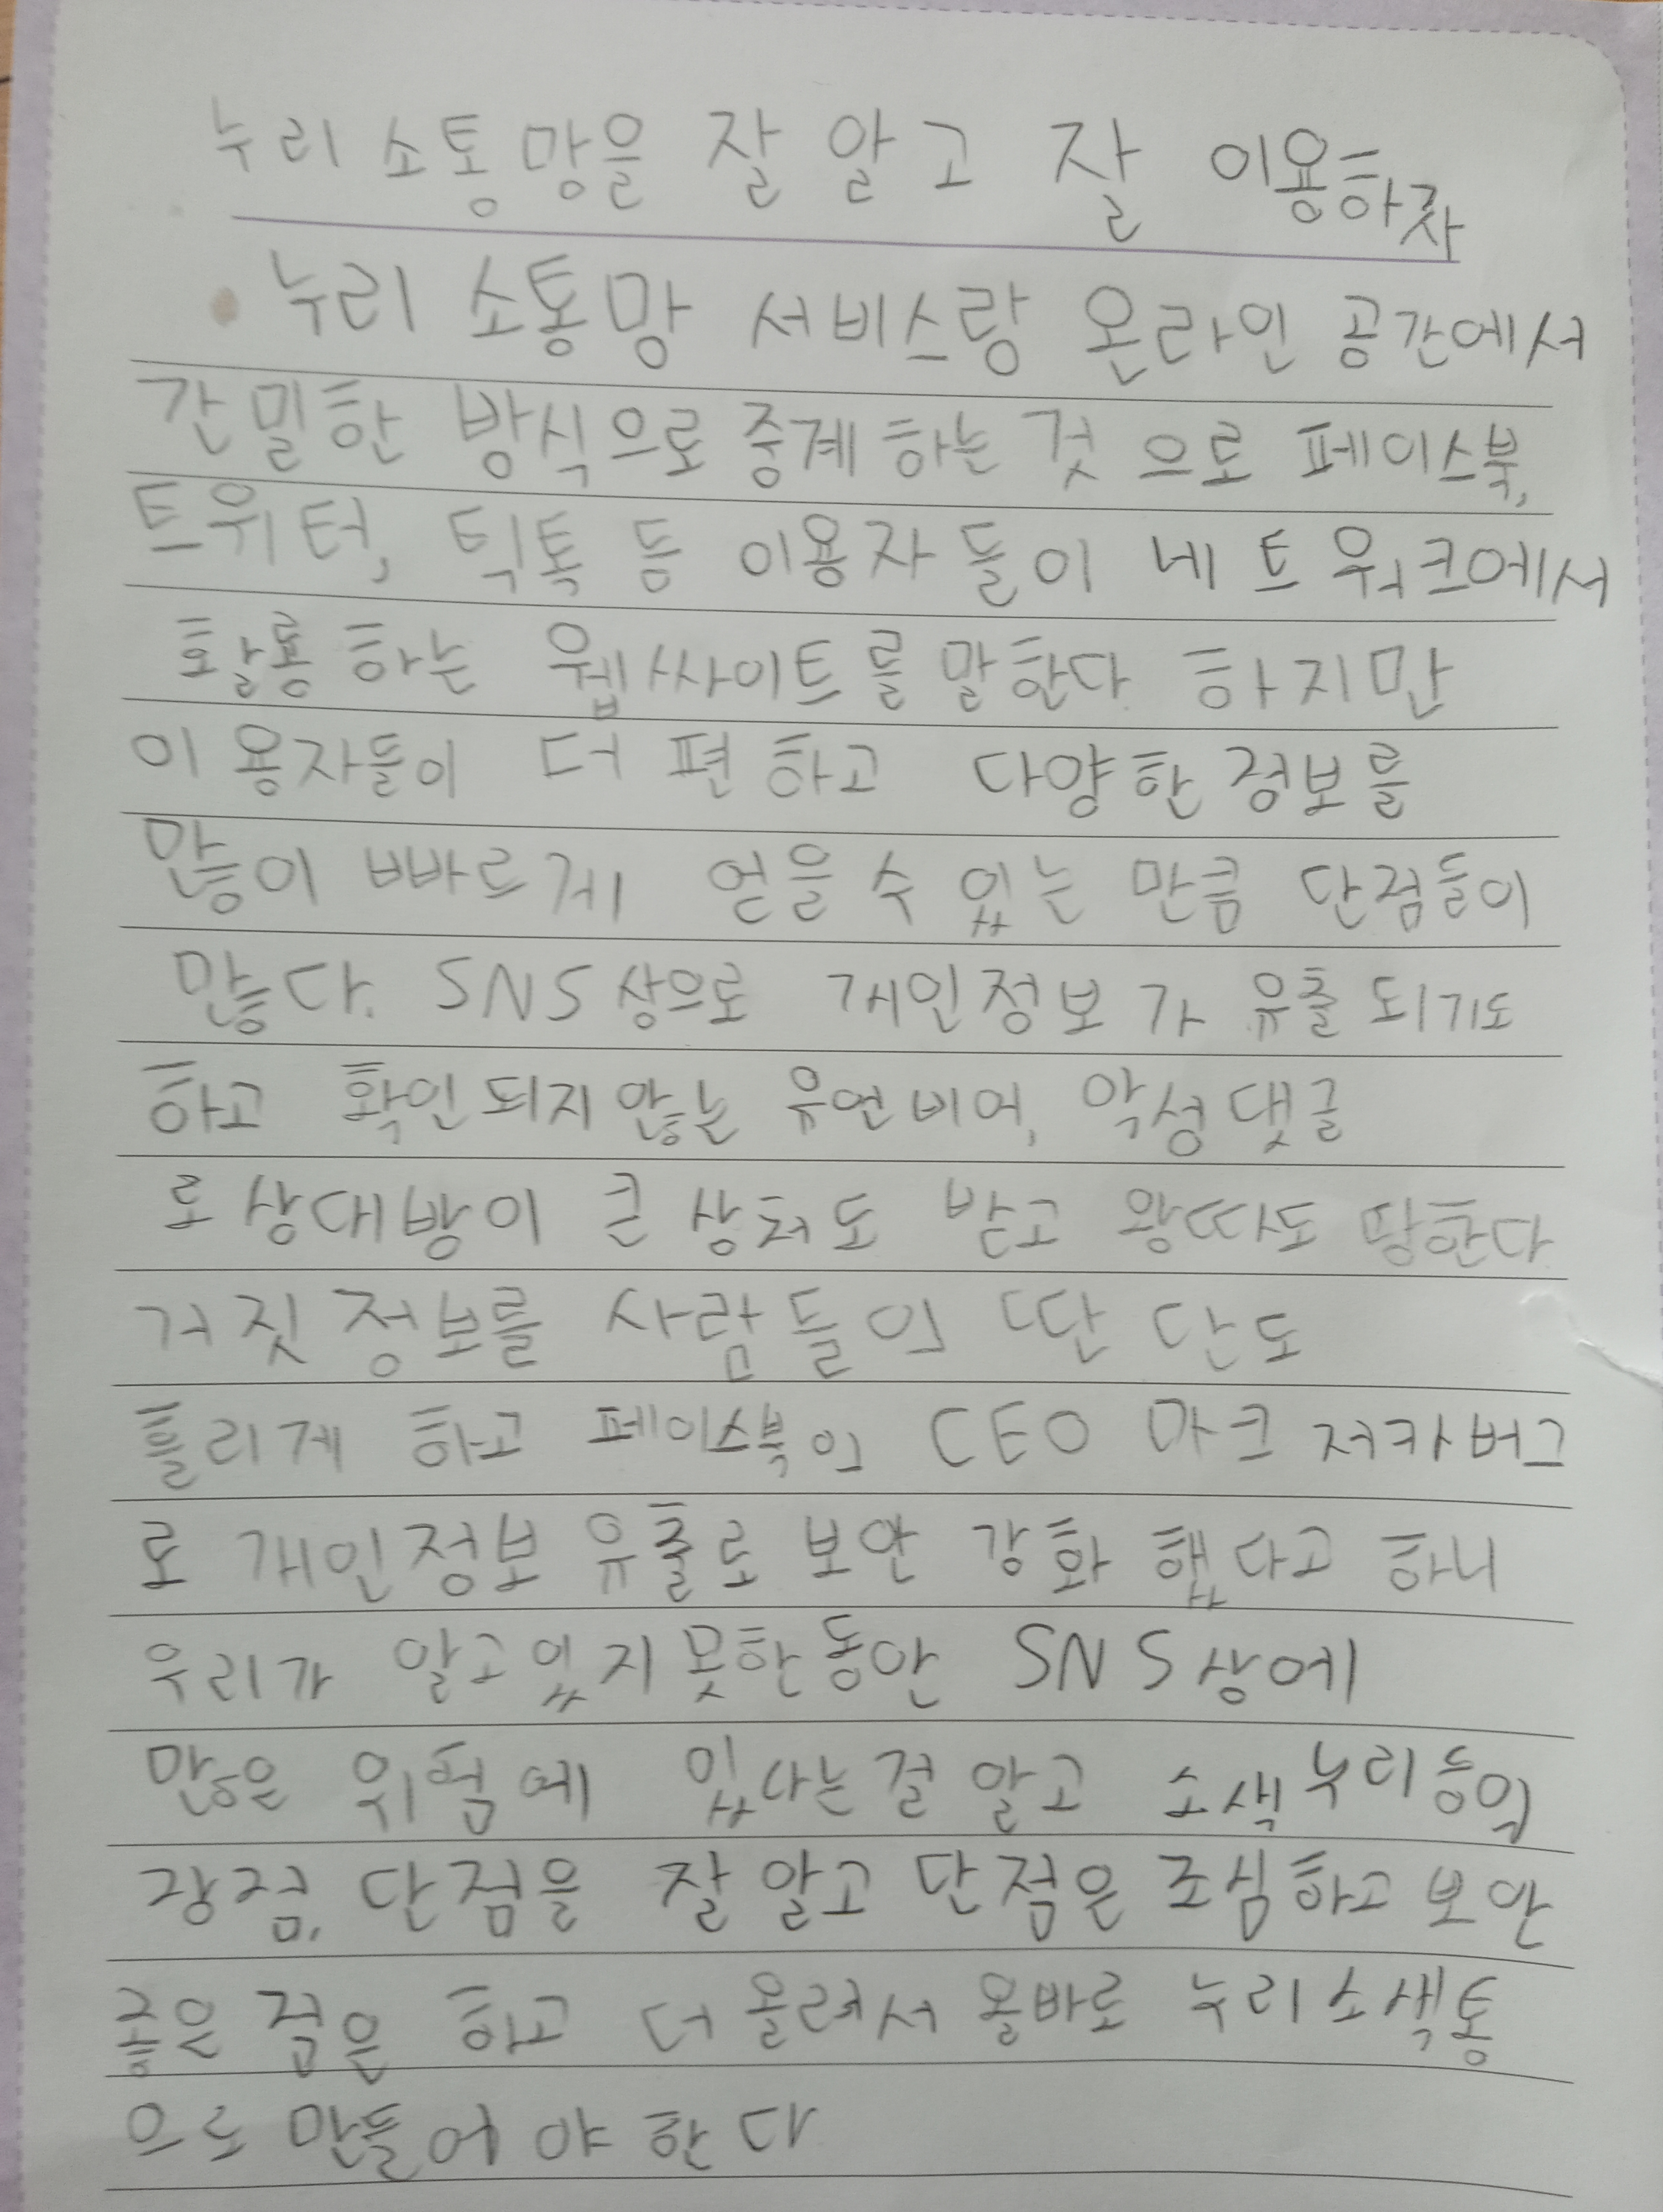 누리소통망을 잘 알고 잘 이용하자
누리 소통망 서비스랑 온라인 공간에서
간밀한 방식으로 중계하는 것 으로 페이스북,
트위터, 틱톡 등 이용자들이 네트워크에서
활용하는 웹싸이트를 말한다 하지만
이용자들이 더 편하고 다양한 정보를
많이 빠르게 얻을 수 있는 만큼 단점들이
많다. SNS상으로 개인정보가 유출되기도
하고 확인되지 않는 유언비어, 악성댓글
로 상대방이 큰 상처도 받고 왕따도 당한다
거짓정보를 사람들의 판단도
흘리게 하고 페이스북의 CEO 마크 저카버그
로 개인정보 유출로 보안 강화 했다고 하니
우리가 알고있지못한동안 SNS상에
많은 위험에 있다는걸 알고 소색누리등의
장점, 단점을 잘 알고 단점은 조심하고 보안
좋은 점은 하고 더 올려서 올바로 누리소색통
으로 만들어야 한다